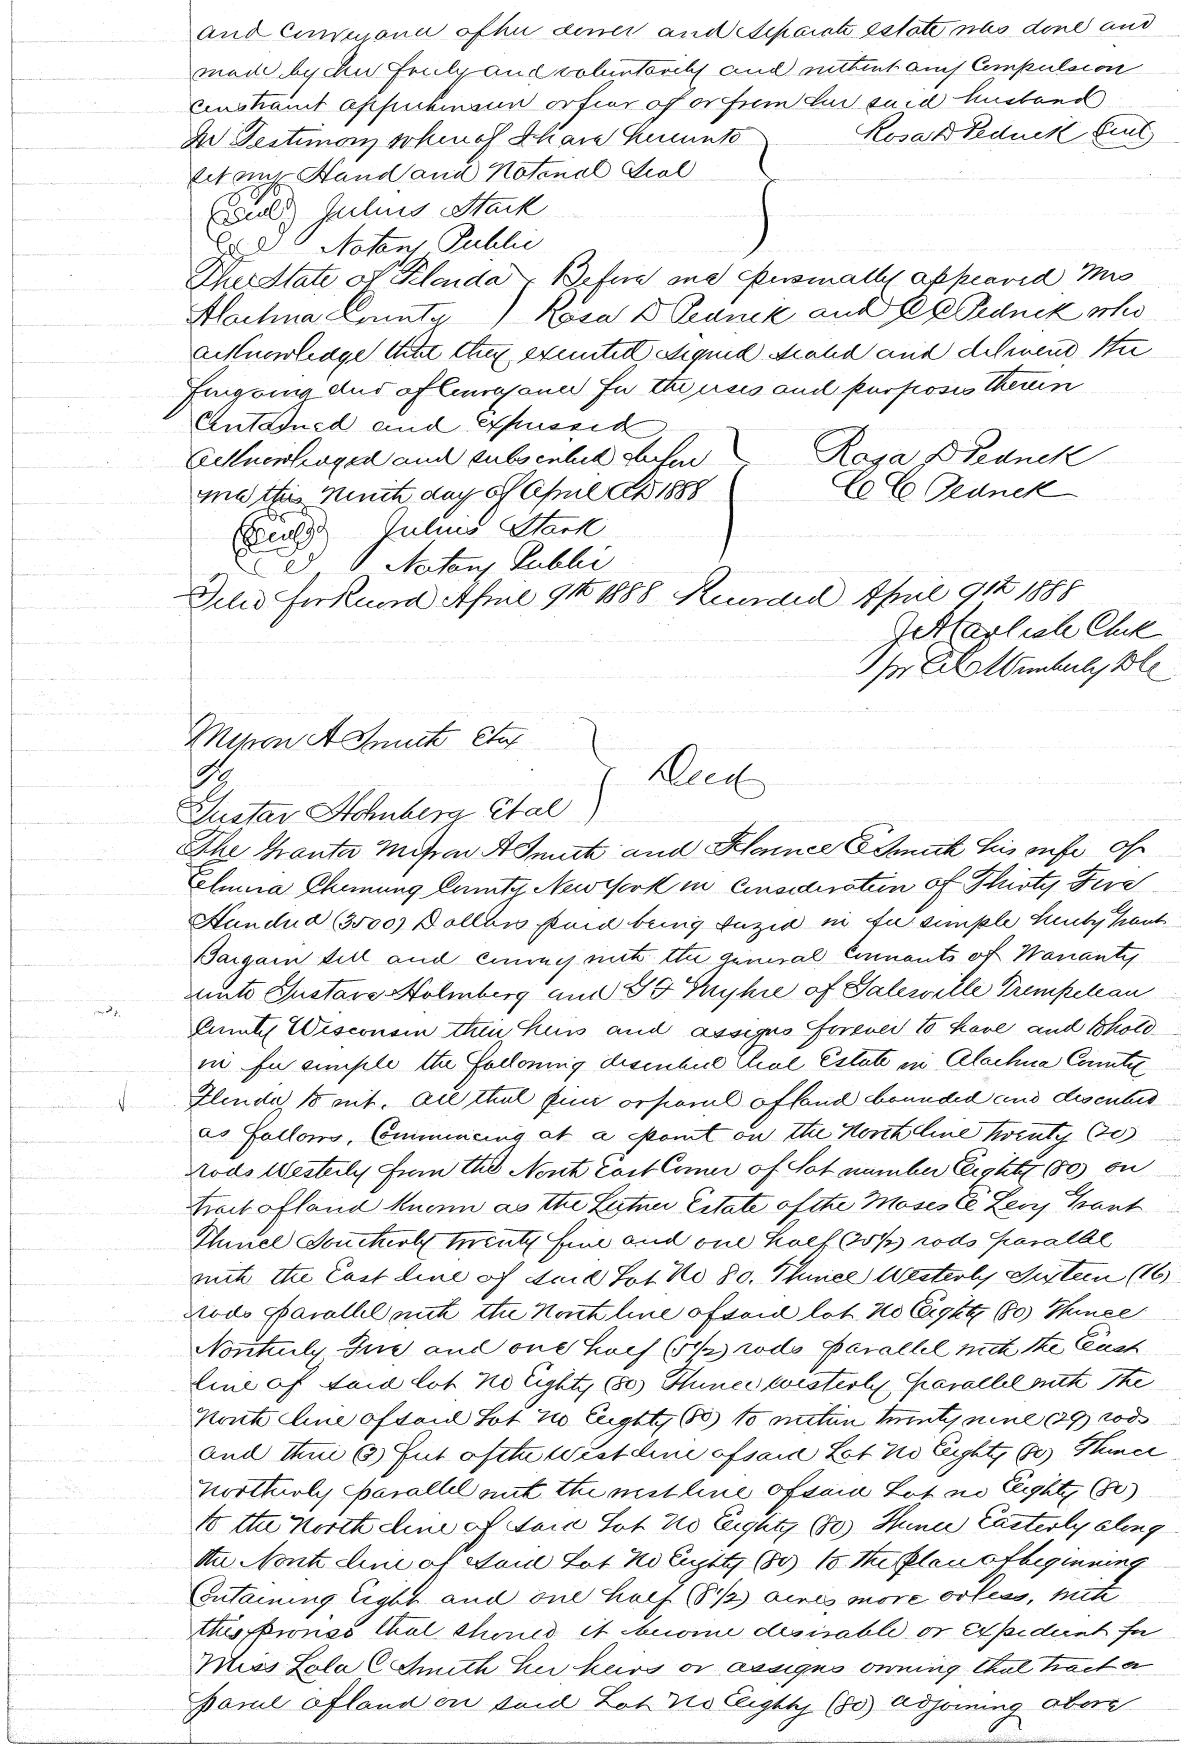 and Conveyance of her dower and Separate estate was done and
made by her freely and voluntarily and without any Compulsion
constraint apprehension or fear of or from her said husband
In Testimony whereof I have hereunto Rosa D Pednek Seal
set my Hand and Notarial Seal
(Seal) Julius Stark
Notary Public
The State of Florida } Before me personally appeared Mrs
Alachua County } Rosa D Pednek and C C Pednek who
acknowledge that they executed signed sealed and delivered the
foregoing deed of Conveyance for the uses and purposes therein
Contained and Expressed
Acknowledged and subscribed before Rosa D Pednek
me this ninth day of April AD 1888 C C Pednek
(Seal) Julius Stark
Notary Public
Filed for Record April 9th 1888 Recorded April 9th 1888
Clerk
per Wimberly D C
Myron A Smith Etux
To } Deed
Gustav Holmberg Et al
The Grantor Myron A Smith and Florence E Smith his wife of
Elmira Chemung County New York in Consideration of Thirty Five
Hundred (3500) Dollars paid being seized in fee simple hereby Grant
Bargain sell and convey with the general Covenants of Warranty
unto Gustave Holmberg and Myhre of Galesville Trempeleau
County Wisconsin their heirs and assigns forever to have and to hold
in fee simple the following described Real Estate in Alachua County
Florida to wit. All that piece or parcel of land bounded and described
as follows, Commencing at a point on the North line twenty (20)
rods Westerly from the North East Corner of Lot number Eighty (80) on
tract of land known as the Leitner Estate of the Moses E Levy Grant
Thence Southerly twenty five and one half (25 1/2) rods parallel
with the East line of said Lot No 80. Thence Westerly Sixteen (16)
rods parallel with the North line of said lot No Eighty (80) Thence
Northerly Five and one half (5 1/2) rods parallel with the East
line of said lot No Eighty (80) Thence westerly parallel with the
North line of said Lot No Eighty (80) to within twenty nine (29) rods
and three (3) feet of the West line of said Lot No Eighty (80) Thence
Northerly parallel with the west line of said Lot no Eighty (80)
to the North line of said Lot No Eighty (80) Thence Easterly along
the North line of said Lot No Eighty (80) to the place of beginning
Containing Eight and one half (8 1/2) acres more or less, with
this proviso that should it become desirable or expedient for
Miss Lola C Smith her heirs or assigns owning that tract or
parcel of land on said Lot No Eighty (80) adjoining above